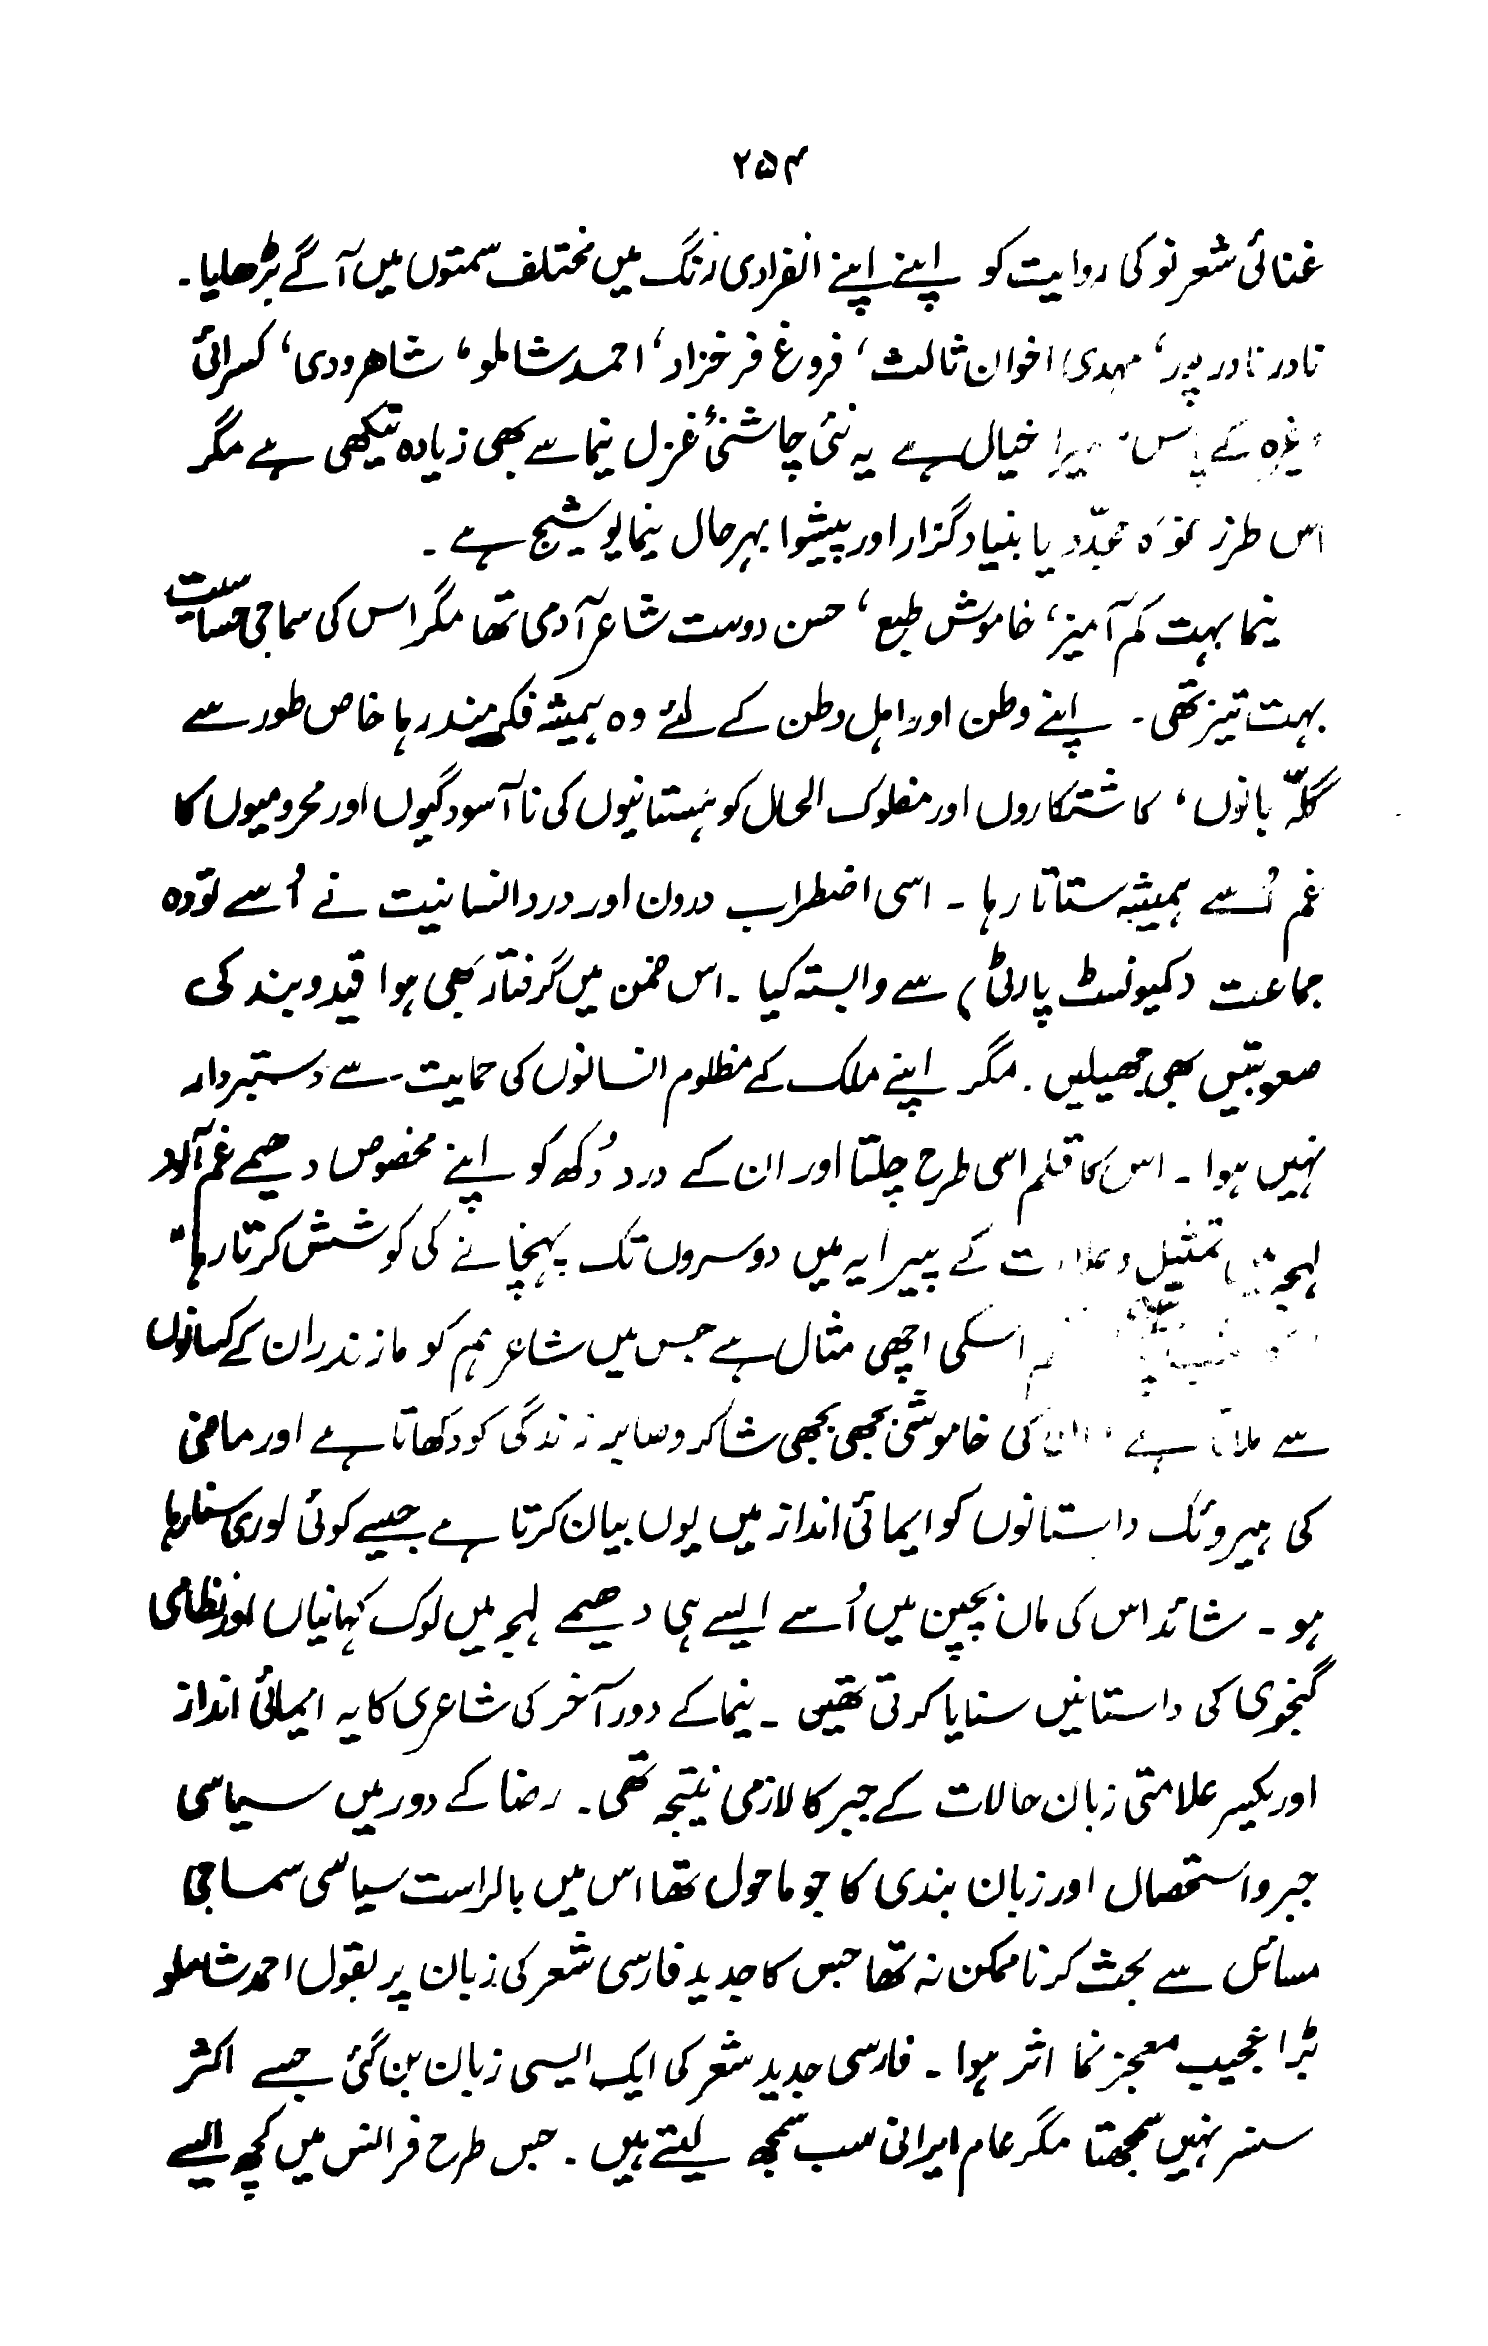 ۲۵۴
غنائی شعر نو کی روایت کو اپنے اپنے انفرادی رنگ میں مختلف سمتوں میں آگے بڑھایا۔
نادر نادر پور، مہدی اخوان ثالث، فروغ فرخزاد، احمد شاملو، شاھرودی، کسرائی
وغیرہ کے پاس میرا خیال ہے یہ نئی چاشنیٔ غزل نیما سے بھی زیادہ تیکھی ہے مگر
اس طرز نو کا مجدّد یا بنیاد گزار اور پیشوا بہرحال نیما یوشیج ہے۔
نیما بہت کم آمیز، خاموش طبع، حسن دوست شاعر آدمی تھا مگر اس کی سماجی حساسیت
بہت تیز تھی۔ اپنے وطن اور اہل وطن کے لئے وہ ہمیشہ فکر مند رہا خاص طور سے
گلّہ بانوں، کاشتکاروں اور مفلوک الحال کوہستانیوں کی ناآسودگیوں اور محرومیوں کا
غم اُسے ہمیشہ ستاتا رہا۔ اسی اضطراب درون اور درد انسانیت نے اُسے تودہ
جماعت (کمیونسٹ پارٹی) سے وابستہ کیا۔ اس ضمن میں گرفتار بھی ہوا قید و بند کی
صعوبتیں بھی جھیلیں۔ مگر اپنے ملک کے مظلوم انسانوں کی حمایت سے دستبردار
نہیں ہوا۔ اس کا قلم اسی طرح چلتا اور ان کے درد دُکھ کو اپنے مخصوص دھیمے غم آلود
لہجہ میں تمثیل و علامت کے پیرایہ میں دوسروں تک پہنچانے کی کوشش کرتا رہا"
اسکی اچھی مثال ہے جس میں شاعر ہم کو مازندران کے کسانوں
سے ملاتا ہے ان کی خاموش بجھی بجھی شاکر و صابر زندگی کو دکھاتا ہے اور ماضی
کی ہیروئک داستانوں کو ایمائی انداز میں یوں بیان کرتا ہے جیسے کوئی لوری سنا رہا
ہو۔ شائد اس کی ماں بچپن میں اُسے ایسے ہی دھیمے لہجہ میں لوک کہانیاں اور نظامی
گنجوی کی داستانیں سنایا کرتی تھیں۔ نیما کے دور آخر کی شاعری کا یہ ایمائی انداز
اور یکسر علامتی زبان حالات کے جبر کا لازمی نتیجہ تھی۔ رضا کے دور میں سیاسی
جبر و استحصال اور زبان بندی کا جو ماحول تھا اس میں بالراست سیاسی سماجی
مسائل سے بحث کرنا ممکن نہ تھا جس کا جدید فارسی شعر کی زبان پر بقول احمد شاملو
بڑا عجیب معجز نما اثر ہوا۔ فارسی جدید شعر کی ایک ایسی زبان بن گئی جسے اکثر
سنسر نہیں سمجھتا مگر عام ایرانی سب سمجھ لیتے ہیں۔ جس طرح فرانس میں کچھ ایسے